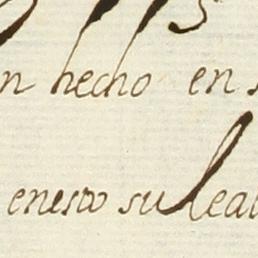 n hecho en s
enesto su Leal